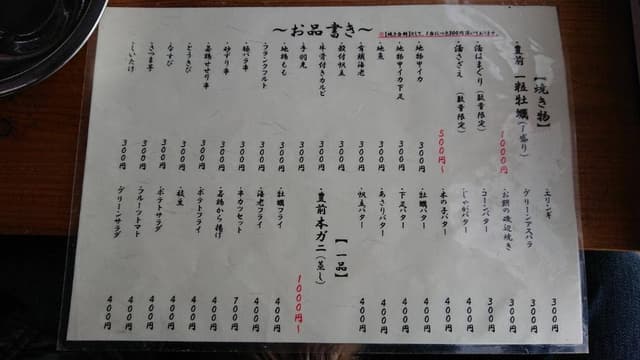 ～お品書き～
【焼き物】
・豊前一粒牡蠣(一盛り) 1000円
・活はまぐり (数量限定)
・活さざえ (数量限定) 500円～
・地物サイカ 300円
・地物サイカ下足 300円
・地魚 300円
・有頭海老 300円
・殻付帆立 300円
・牛骨付きカルビ 300円
・手羽先 300円
・地鶏もも 300円
・フランクフルト 300円
・豚バラ串 300円
・砂ずり串 300円
・若鶏せせり串 300円
・とうきび 300円
・なすび 300円
・さつま芋 300円
・しいたけ 300円
エリンギ 300円
グリーンアスパラ 300円
・お餅の磯辺焼き 300円
・コーンバター 300円
・じゃがバター 400円
・木の子バター 400円
・牡蠣バター 400円
・下足バター 400円
・あさりバター 400円
・帆立バター 400円
【一品】
・豊前本ガニ(蒸し) 1000円～
・牡蠣フライ 400円
・海老フライ 400円
・キカラセット 700円
・若鶏から揚げ 400円
・ポテトフライ 400円
・枝豆 400円
・ポテトサラダ 400円
・フルーツトマト 400円
グリーンサラダ 400円